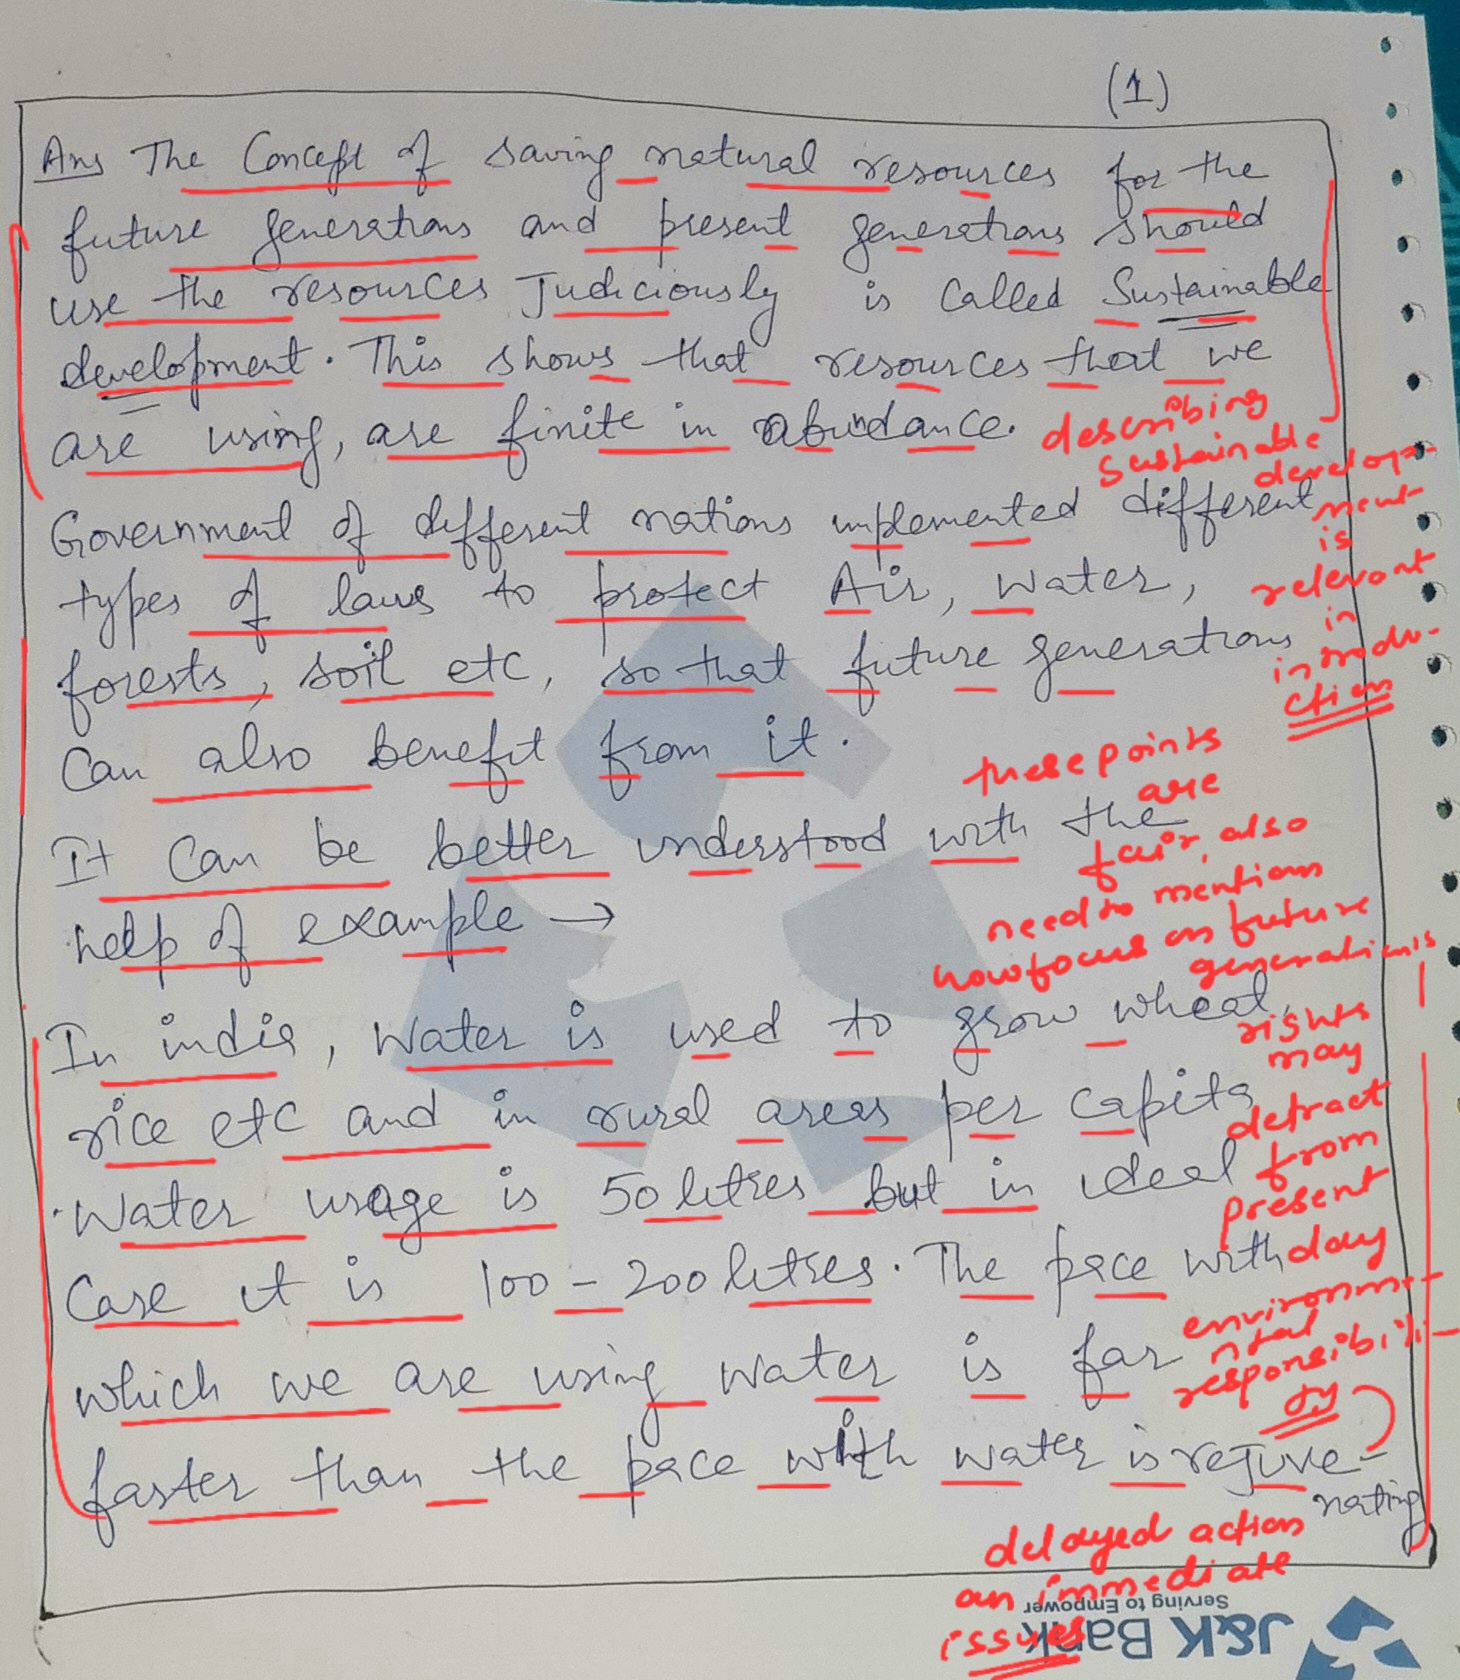 (1)
Ans The Concept of saving natural resources for the
future generations and present generations should
use the resources Judiciously is called Sustainable
development. This shows that resources that we
are using, are finite in abundance.
describing
sustainable
develop-
ment
is
relevant
in
introdu-
ction
Government of different nations implemented different
types of laws to protect Air, Water,
forests, soil etc, so that future generations
Can also benefit from it.
these points
are
fair, also
need to mention
how focus on future
generations
rights
may
detract
from
present
day
environm-
ntal
responsibili-
ty
It Can be better understood with the
help of example →
In india, Water is used to grow wheat,
rice etc and in rural areas per capita
Water usage is 50 litres but in ideal
Case it is 100-200 litres. The pace with
which we are using water is far
faster than the pace with water is rejuve-
nating
delayed action
on immediate
issues
J&K Bank
Serving to Empower